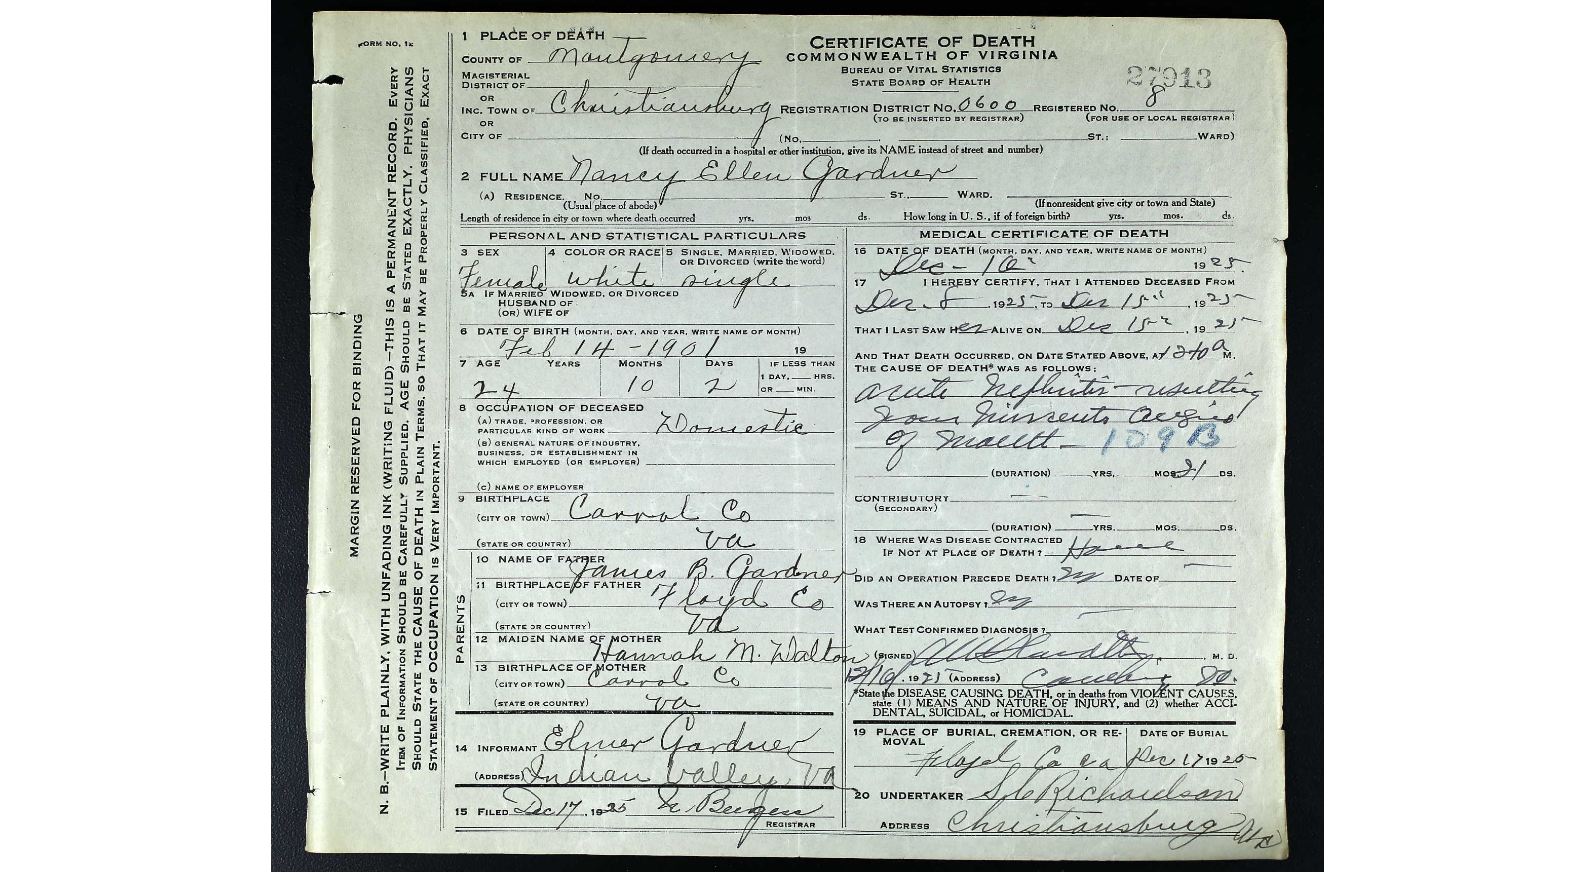 FORM NO. 1
MARGIN RESERVED FOR BINDING
N. B.—WRITE PLAINLY, WITH UNFADING INK (WRITING FLUID)—THIS IS A PERMANENT RECORD. EVERY
ITEM OF INFORMATION SHOULD BE CAREFULLY SUPPLIED. AGE SHOULD BE STATED EXACTLY. PHYSICIANS
SHOULD STATE THE CAUSE OF DEATH IN PLAIN TERMS, SO THAT IT MAY BE PROPERLY CLASSIFIED. EXACT
STATEMENT OF OCCUPATION IS VERY IMPORTANT.
1 PLACE OF DEATH
COUNTY OF Montgomery
MAGISTERIAL
DISTRICT OF
OR
INC. TOWN OF Christiansburg
OR
CITY OF
CERTIFICATE OF DEATH
COMMONWEALTH OF VIRGINIA
BUREAU OF VITAL STATISTICS
STATE BOARD OF HEALTH
27913
REGISTRATION DISTRICT NO. 0600 REGISTERED NO. 8
(TO BE INSERTED BY REGISTRAR) (FOR USE OF LOCAL REGISTRAR)
(No. ST.; WARD)
(If death occurred in a hospital or other institution, give its NAME instead of street and number)
2 FULL NAME Nancy Ellen Gardner
(A) RESIDENCE. No. ST., WARD.
(Usual place of abode) (If nonresident give city or town and State)
Length of residence in city or town where death occurred yrs. mos ds. How long in U. S., if of foreign birth? yrs. mos. ds.
PERSONAL AND STATISTICAL PARTICULARS
3 SEX 4 COLOR OR RACE 5 SINGLE, MARRIED, WIDOWED,
OR DIVORCED (write the word)
Female white single
5A IF MARRIED, WIDOWED, OR DIVORCED
HUSBAND OF
(OR) WIFE OF
6 DATE OF BIRTH (MONTH, DAY, AND YEAR, WRITE NAME OF MONTH)
Feb 14-1901 19
7 AGE YEARS MONTHS DAYS IF LESS THAN
1 DAY, HRS.
OR MIN.
24 10 2
8 OCCUPATION OF DECEASED
(A) TRADE, PROFESSION, OR
PARTICULAR KIND OF WORK Domestic
(B) GENERAL NATURE OF INDUSTRY,
BUSINESS, OR ESTABLISHMENT IN
WHICH EMPLOYED (OR EMPLOYER)
(C) NAME OF EMPLOYER
9 BIRTHPLACE
(CITY OR TOWN) Carrol Co
(STATE OR COUNTRY) Va
PARENTS
10 NAME OF FATHER James B. Gardner
11 BIRTHPLACE OF FATHER
(CITY OR TOWN) Floyd Co
(STATE OR COUNTRY) Va
12 MAIDEN NAME OF MOTHER
Hannah M. Walton
13 BIRTHPLACE OF MOTHER
(CITY OR TOWN) Carrol Co
(STATE OR COUNTRY) Va
14 INFORMANT Elmer Gardner
(ADDRESS) Indian Valley, Va
15 FILED Dec 17, 1925
REGISTRAR
MEDICAL CERTIFICATE OF DEATH
16 DATE OF DEATH (MONTH, DAY, AND YEAR, WRITE NAME OF MONTH)
Dec - 1925.
17 I HEREBY CERTIFY, THAT I ATTENDED DECEASED FROM
Dec 8, 1925, TO Dec 15, 1925
THAT I LAST SAW HER ALIVE ON Dec 15, 1925
AND THAT DEATH OCCURRED, ON DATE STATED ABOVE, AT M.
THE CAUSE OF DEATH* WAS AS FOLLOWS:
acute Nephritis - resulting
from
of 109 B
(DURATION) YRS. MOS 21 DS.
CONTRIBUTORY
(SECONDARY)
(DURATION) YRS. MOS. DS.
18 WHERE WAS DISEASE CONTRACTED
IF NOT AT PLACE OF DEATH? Home
DID AN OPERATION PRECEDE DEATH? DATE OF
WAS THERE AN AUTOPSY?
WHAT TEST CONFIRMED DIAGNOSIS?
(SIGNED) M. D.
1925 (ADDRESS)
*State the DISEASE CAUSING DEATH, or in deaths from VIOLENT CAUSES,
state (1) MEANS AND NATURE OF INJURY, and (2) whether ACCI-
DENTAL, SUICIDAL, or HOMICIDAL.
19 PLACE OF BURIAL, CREMATION, OR RE-
MOVAL DATE OF BURIAL
Floyd Co Va Dec 17 1925
20 UNDERTAKER Richardson
ADDRESS Christiansburg